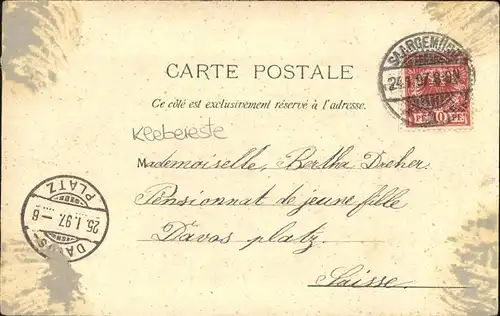 SAARGEMÜND
24.1.97.8-9N
10 PF
CARTE POSTALE
Ce côté est exclusivement réservé à l'adresse.
Klebereste
Mademoiselle, Bertha Dreher.
Pensionnat de jeune fille
Davos platz.
Suisse.
DAVOS
PLATZ
25.I.97.-6